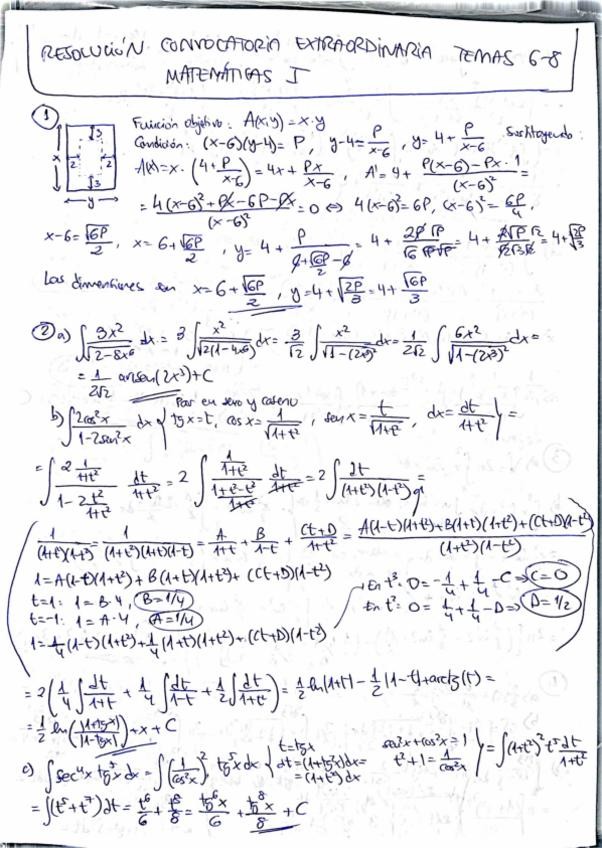 RESOLUCIÓN CONVOCATORIA EXTRAORDINARIA TEMAS 6-8
MATEMÁTICAS I
① Función objetivo: A(x,y) = x·y
Condición: (x-6)(y-4) = P, y-4 = P/(x-6), y = 4 + P/(x-6) Sustituyendo:
x 3 2 2 3 y
A(x) = x·(4 + P/(x-6)) = 4x + Px/(x-6), A' = 4 + (P(x-6) - Px·1)/(x-6)² =
= (4(x-6)² + Px - 6P - Px)/(x-6)² = 0 ⇔ 4(x-6)² = 6P, (x-6)² = 6P/4,
x-6 = √6P/2, x = 6 + √6P/2, y = 4 + P/(6 + √6P/2 - 6) = 4 + 2P√P/(√6√P√P) = 4 + 2√P√2/(√2√3√2) = 4 + √(2P/3)
Las dimensiones son x = 6 + √6P/2, y = 4 + √(2P/3) = 4 + √6P/3
② a) ∫ 3x²/√(2-8x⁶) dx = 3 ∫ x²/√(2(1-4x⁶)) dx = 3/√2 ∫ x²/√(1-(2x³)²) dx = 1/(2√2) ∫ 6x²/√(1-(2x³)²) dx =
= 1/(2√2) arcsen(2x³) + C
Par en seno y coseno
b) ∫ 2cos²x/(1-2sen²x) dx { tgx = t, cos x = 1/√(1+t²), sen x = t/√(1+t²), dx = dt/(1+t²) } =
= ∫ (2 1/(1+t²))/(1 - 2t²/(1+t²)) dt/(1+t²) = 2 ∫ (1/(1+t²))/((1+t²-t²)/(1+t²)) dt/(1+t²) = 2 ∫ dt/((1+t²)(1-t²)) =
1/((1+t²)(1-t²)) = 1/((1+t²)(1+t)(1-t)) = A/(1+t) + B/(1-t) + (Ct+D)/(1+t²) = (A(1-t)(1+t²) + B(1+t)(1+t²) + (Ct+D)(1-t²))/((1+t²)(1-t²))
1 = A(1-t)(1+t²) + B(1+t)(1+t²) + (Ct+D)(1-t²)
t=1: 1 = B·4, B = 1/4
t=-1: 1 = A·4, A = 1/4
1 = 1/4(1-t)(1+t²) + 1/4(1+t)(1+t²) + (Ct+D)(1-t²)
En t³: 0 = -1/4 + 1/4 - C ⇒ C = 0
En t²: 0 = 1/4 + 1/4 - D ⇒ D = 1/2
= 2(1/4 ∫ dt/(1+t) + 1/4 ∫ dt/(1-t) + 1/2 ∫ dt/(1+t²)) = 1/2 ln|1+t| - 1/2 |1-t| + arctg(t) =
= 1/2 ln(|1+tgx|/|1-tgx|) + x + C
c) ∫ sec⁴x tg⁵x dx = ∫ (1/cos²x)² tg⁵x dx { t = tgx
dt = (1+tg²x)dx =
= (1+t²)dx
sen²x + cos²x = 1
t² + 1 = 1/cos²x } = ∫ (1+t²)² t⁵ dt/(1+t²)
= ∫ (t⁵ + t⁷) dt = t⁶/6 + t⁸/8 = tg⁶x/6 + tg⁸x/8 + C